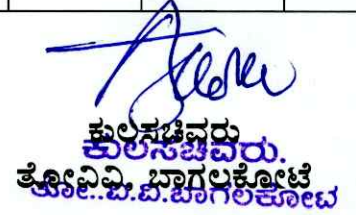 ಕುಲಸಚಿವರು
ಕುಲಸಚಿವರು.
ತೋವಿವಿ, ಬಾಗಲಕೋಟೆ
ತೋ.ವಿ.ವಿ.ಬಾಗಲಕೋಟ